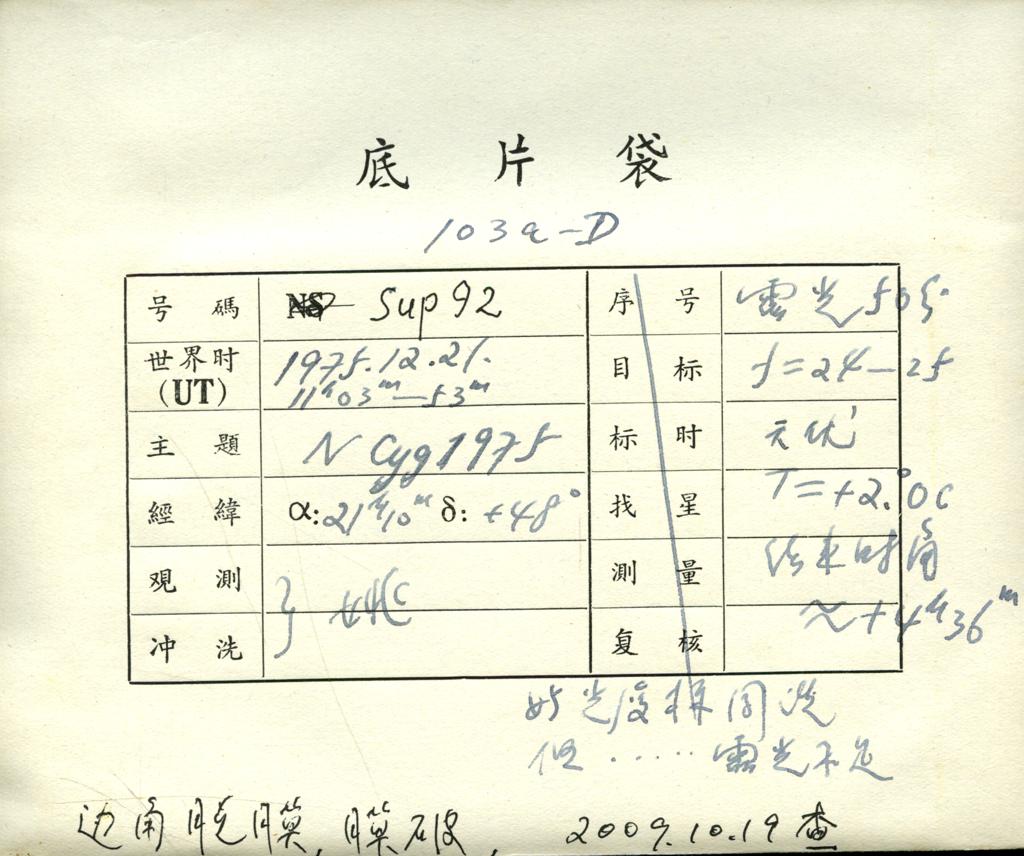 底片袋
103a-D
号碼 Sup 92 序号 露光 50分
世界时 1975.12.21. 目标 f=24—25
(UT) 11ʰ03ᵐ—53ᵐ
主題 N Cyg 1975 标时 天优
經緯 α: 21ʰ10ᵐ δ: +48° 找星 T=+2.°0C
观測 測量 结束时角
冲洗 复核 ≈+4ʰ36ᵐ
与光度样同洗
但······露光不足
边角脱膜,膜破, 2009.10.19 查